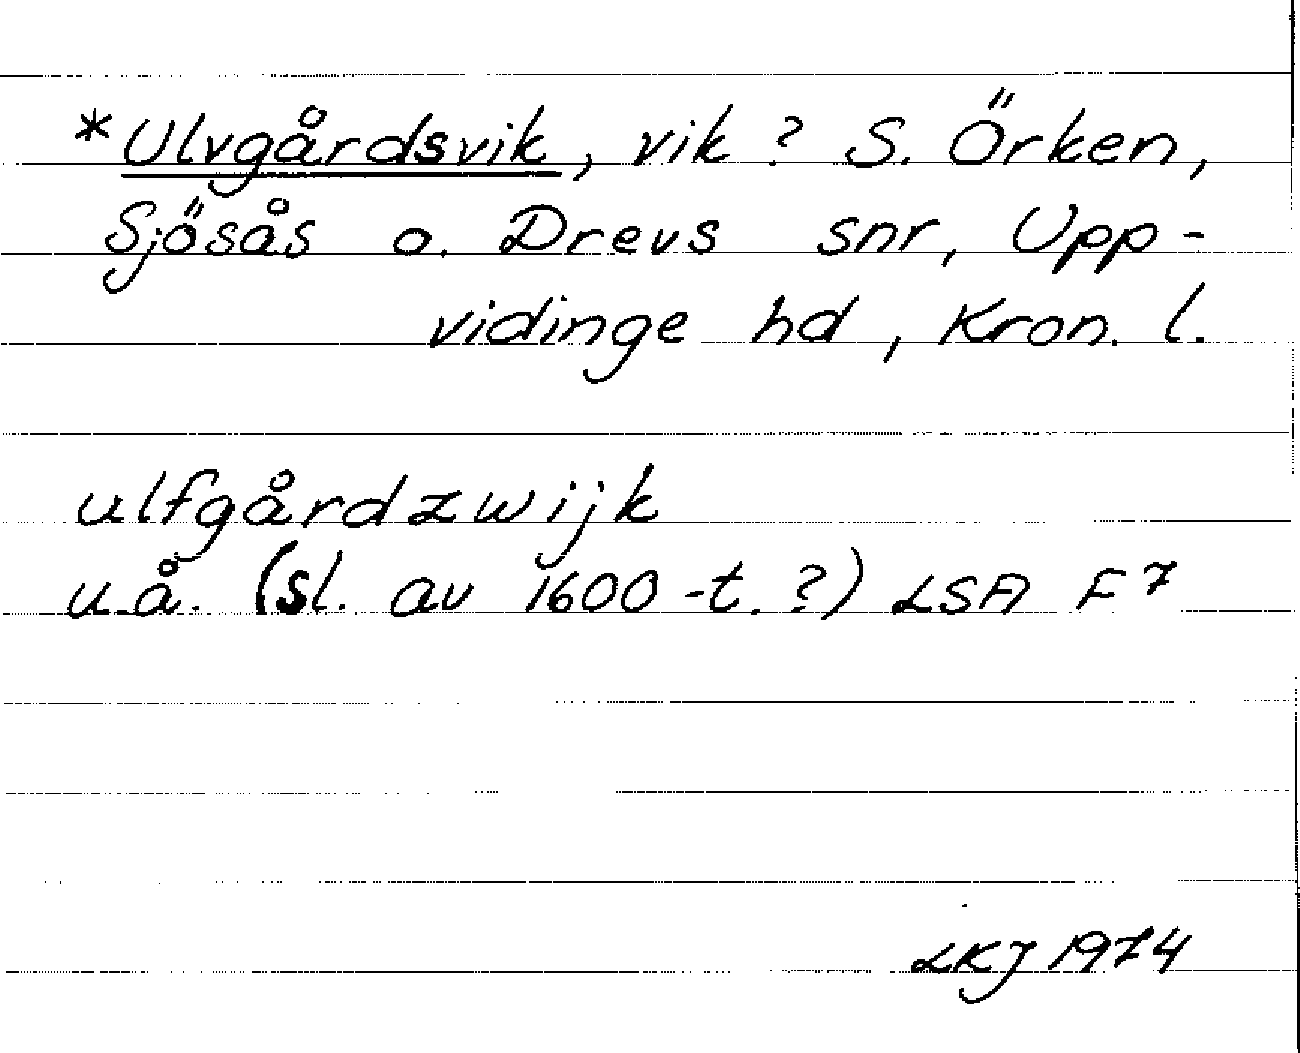 *Ulvgårdsvik, vik? S. Örken,
Sjösås o. Drevs snr, Upp-
vidinge hd, Kron. l.
ulfgårdzwijk
u.å. (sl. av 1600-t.?) LSA F7
LKJ 1974